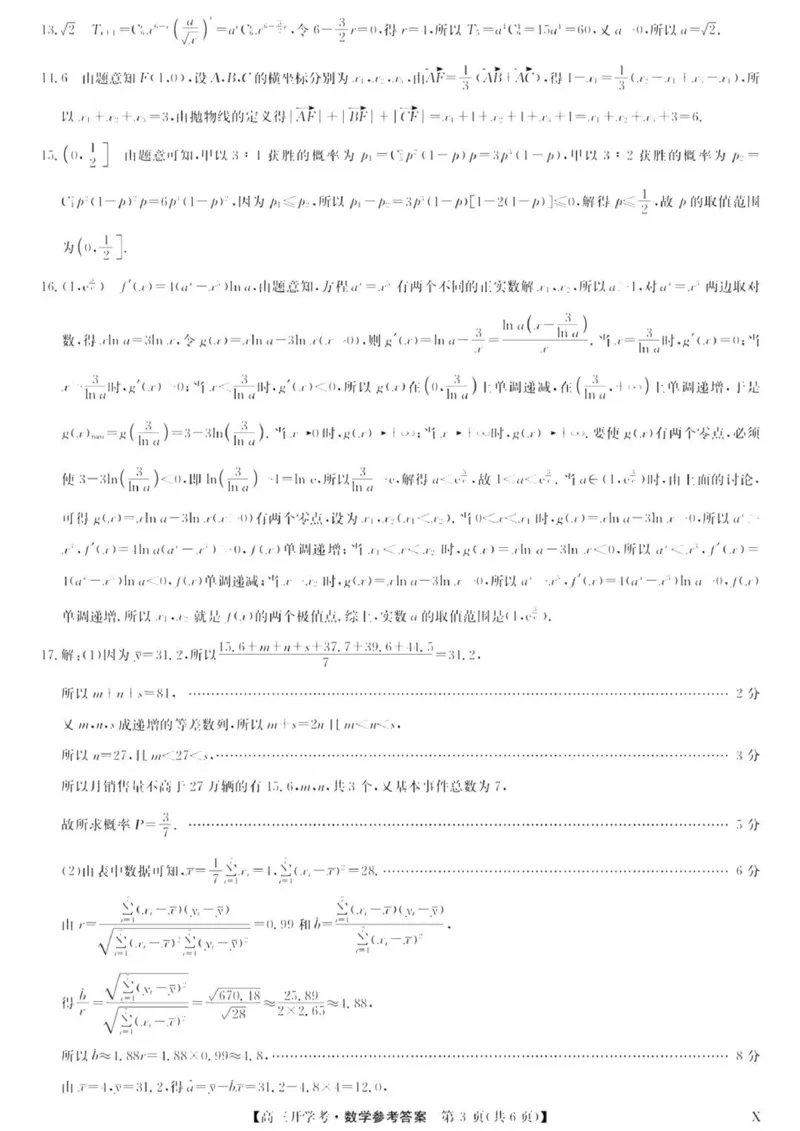 13.√2　T_{r+1}=C_6^r x^{6-r}(a/√x)^r=a^r C_6^r x^{6-\frac{3}{2}r},令6-\frac{3}{2}r=0,得r=4,所以T_5=a^4C_6^4=15a^4=60,又a>0,所以a=√2.
14.6　由题意知F(1,0),设A,B,C的横坐标分别为x_1,x_2,x_3,由\overrightarrow{AF}=\frac{1}{3}(\overrightarrow{AB}+\overrightarrow{AC}),得1-x_1=\frac{1}{3}(x_2-x_1+x_3-x_1),所
以x_1+x_2+x_3=3,由抛物线的定义得|\overrightarrow{AF}|+|\overrightarrow{BF}|+|\overrightarrow{CF}|=x_1+1+x_2+1+x_3+1=x_1+x_2+x_3+3=6.
15.(0,\frac{1}{2}]　由题意可知,甲以3∶1获胜的概率为p_1=C_3^2p^2(1-p)p=3p^3(1-p),甲以3∶2获胜的概率为p_2=
C_4^2p^2(1-p)^2p=6p^3(1-p)^2,因为p_1≤p_2,所以p_1-p_2=3p^3(1-p)[1-2(1-p)]≤0,解得p≤\frac{1}{2},故p的取值范围
为(0,\frac{1}{2}].
16.(1,e^{\frac{3}{e}})　f′(x)=4(a^x-x^3)ln a,由题意知,方程a^x=x^3有两个不同的正实数解x_1,x_2,所以a>1,对a^x=x^3两边取对
数,得xln a=3ln x,令g(x)=xln a-3ln x(x>0),则g′(x)=ln a-\frac{3}{x}=\frac{ln a(x-\frac{3}{ln a})}{x}.当x=\frac{3}{ln a}时,g′(x)=0;当
x>\frac{3}{ln a}时,g′(x)>0;当x<\frac{3}{ln a}时,g′(x)<0,所以g(x)在(0,\frac{3}{ln a})上单调递减,在(\frac{3}{ln a},+∞)上单调递增,于是
g(x)_{min}=g(\frac{3}{ln a})=3-3ln(\frac{3}{ln a}).当x→0时,g(x)→+∞;当x→+∞时,g(x)→+∞.要使g(x)有两个零点,必须
使3-3ln(\frac{3}{ln a})<0,即ln(\frac{3}{ln a})>1=ln e,所以\frac{3}{ln a}>e,解得a<e^{\frac{3}{e}},故1<a<e^{\frac{3}{e}}.当a∈(1,e^{\frac{3}{e}})时,由上面的讨论,
可得g(x)=xln a-3ln x(x>0)有两个零点,设为x_1,x_2(x_1<x_2).当0<x<x_1时,g(x)=xln a-3ln x>0,所以a^x>
x^3,f′(x)=4ln a(a^x-x^3)>0,f(x)单调递增;当x_1<x<x_2时,g(x)=xln a-3ln x<0,所以a^x<x^3,f′(x)=
4(a^x-x^3)ln a<0,f(x)单调递减;当x>x_2时,g(x)=xln a-3ln x>0,所以a^x>x^3,f′(x)=4(a^x-x^3)ln a>0,f(x)
单调递增.所以x_1,x_2就是f(x)的两个极值点.综上,实数a的取值范围是(1,e^{\frac{3}{e}}).
17.解:(1)因为\bar{y}=31.2,所以\frac{15.6+m+n+s+37.7+39.6+44.5}{7}=31.2,
所以m+n+s=81, ………… 2分
又m,n,s成递增的等差数列,所以m+s=2n且m<n<s,
所以n=27,且m<27<s, ………… 3分
所以月销售量不高于27万辆的有15.6,m,n,共3个,又基本事件总数为7,
故所求概率P=\frac{3}{7}. ………… 5分
(2)由表中数据可知,\bar{x}=\frac{1}{7}\sum_{i=1}^{7}x_i=4,\sum_{i=1}^{7}(x_i-\bar{x})^2=28. ………… 6分
由r=\frac{\sum_{i=1}^{7}(x_i-\bar{x})(y_i-\bar{y})}{\sqrt{\sum_{i=1}^{7}(x_i-\bar{x})^2\sum_{i=1}^{7}(y_i-\bar{y})^2}}=0.99和\hat{b}=\frac{\sum_{i=1}^{7}(x_i-\bar{x})(y_i-\bar{y})}{\sum_{i=1}^{7}(x_i-\bar{x})^2},
得\frac{\hat{b}}{r}=\frac{\sqrt{\sum_{i=1}^{7}(y_i-\bar{y})^2}}{\sqrt{\sum_{i=1}^{7}(x_i-\bar{x})^2}}=\frac{\sqrt{670.18}}{\sqrt{28}}≈\frac{25.89}{2×2.65}≈4.88,
所以\hat{b}≈4.88r=4.88×0.99≈4.8, ………… 8分
由\bar{x}=4,\bar{y}=31.2,得\hat{a}=\bar{y}-\hat{b}\bar{x}=31.2-4.8×4=12.0,
【高三开学考·数学参考答案　第3页(共6页)】　X